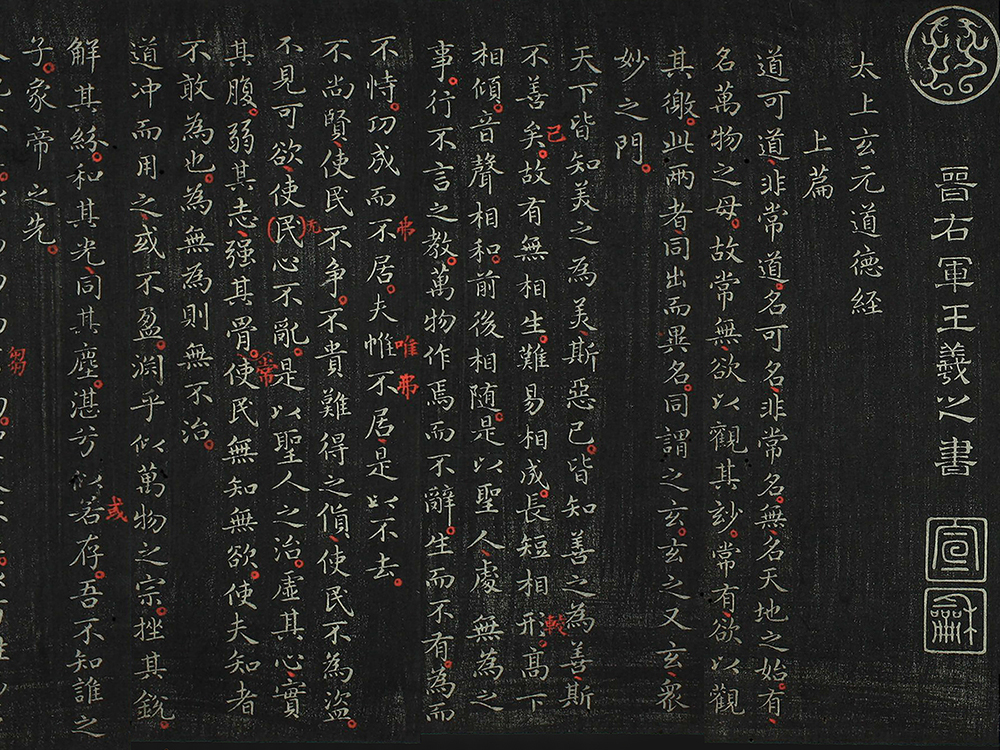 晉右軍王羲之書
宣
龢
太上玄元道德経
上篇
道可道非常道名可名非常名無名天地之始有
名萬物之母故常無欲以觀其玅常有欲以觀
其徼此兩者同出而異名同謂之玄玄之又玄衆
妙之門
天下皆知美之為美斯惡已皆知善之為善斯
不善矣已故有無相生難易相成長短相形較高下
相傾音聲相和前後相随是以聖人處無為之
事行不言之教萬物作焉而不辭生而不有為而
不恃功成而不弗居夫惟唯不弗居是以不去
不尚賢使民不争不貴難得之貨使民不為盗
不見可欲使(民)无心不亂是以聖人之治虛其心實
其腹弱其志强其骨常使民無知無欲使夫知者
不敢為也為無為則無不治
道冲而用之或不盈淵乎似萬物之宗挫其銳
解其紛和其光同其塵湛兮似若或存吾不知誰之
子象帝之先
芻